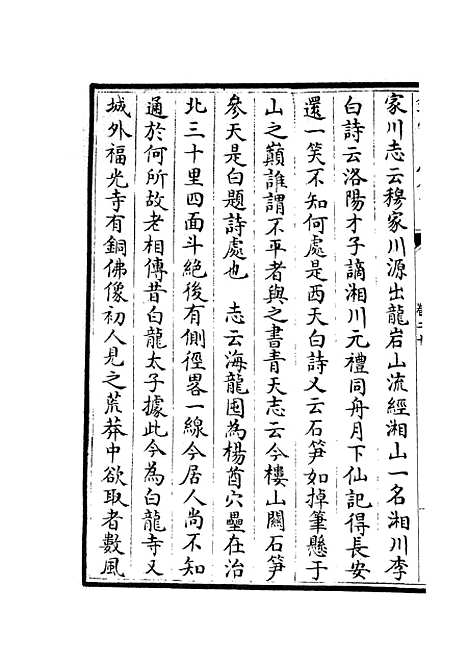 家川志云穆家川源出龍岩山流經湘山一名湘川李
白詩云洛陽才子謫湘川元禮同舟月下仙記得長安
還一笑不知何處是西天白詩又云石笋如掉筆懸于
山之巔誰謂不平者與之書青天志云今樓山關石笋
參天是白題詩處也　志云海龍囤為楊酋穴壘在治
北三十里四面斗絶後有側徑畧一線今居人尚不知
通於何所故老相傳昔白龍太子據此今為白龍寺又
城外福光寺有銅佛像初人見之荒莽中欲取者數風